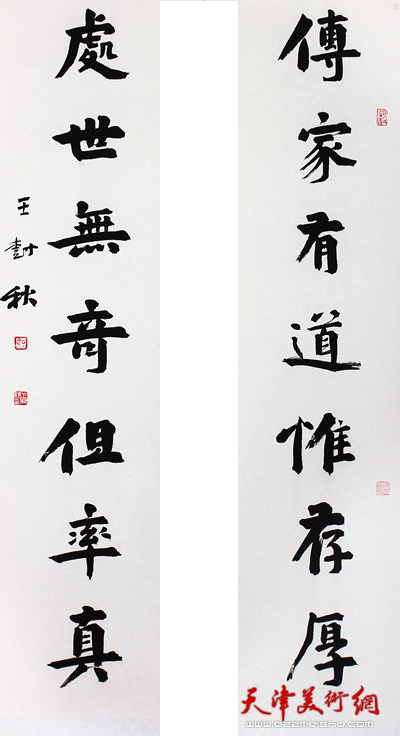 傳家有道惟存厚
處世無奇但率真
王對秋
天津美術網
www.022meishu.com